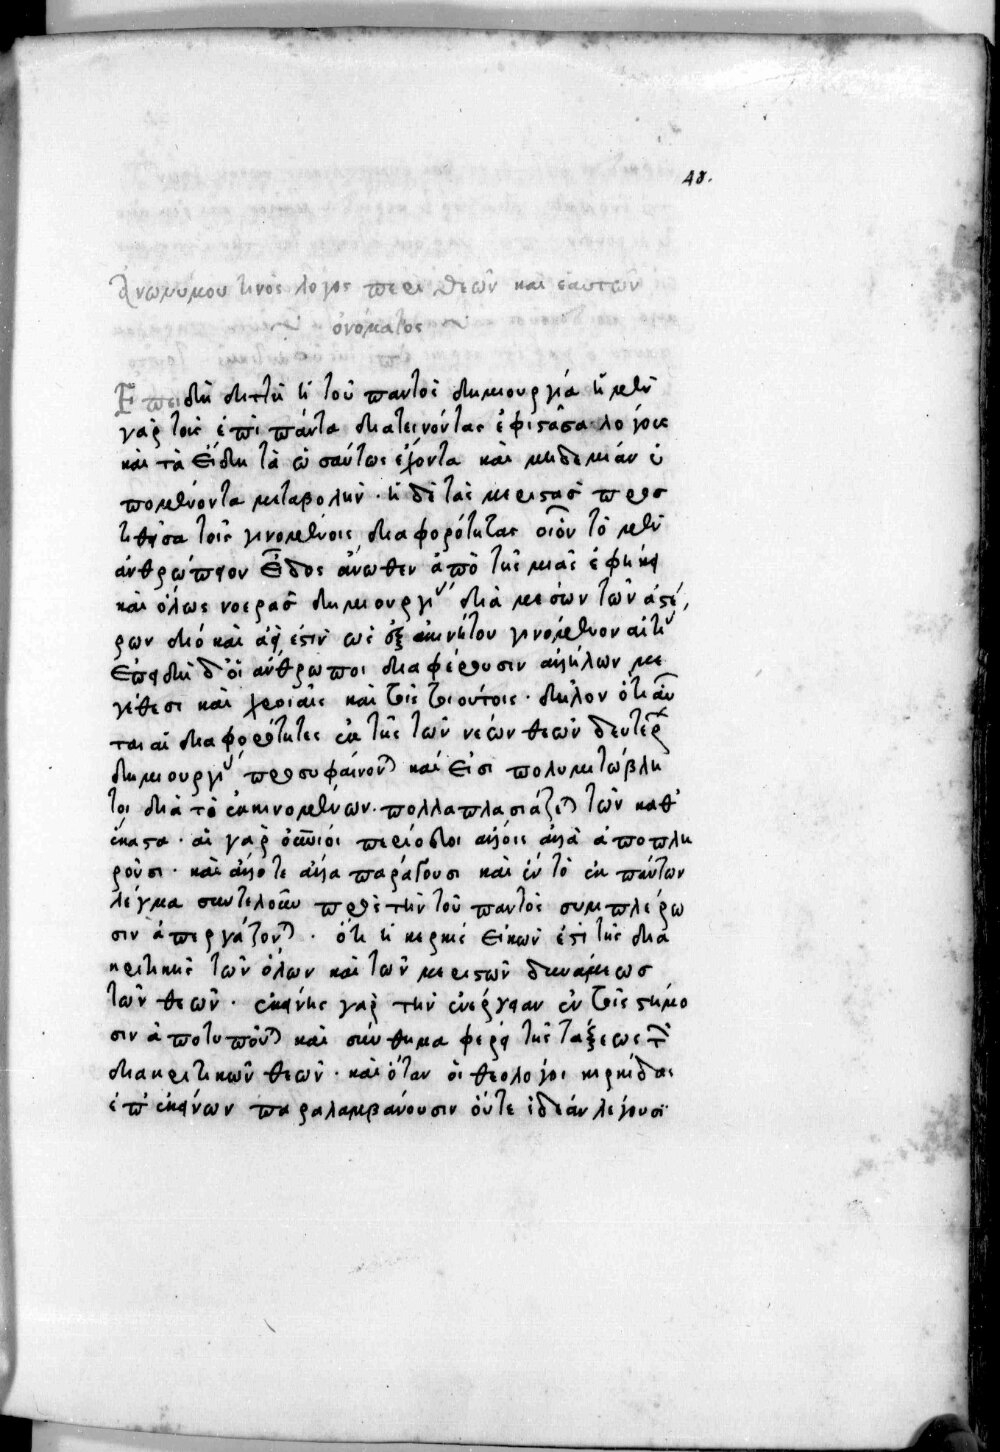 48.
Ἀνωνύμου τινὸς λόγος περὶ θεῶν καὶ ἑαυτῶν
ὀνόματος
Ἐπειδὴ διττὴ ἡ τοῦ παντὸς δημιουργία ἡ μὲν
γὰρ τοὶς ἐπὶ πάντα διατείνοντας ἐφιστᾶσα λόγους
καὶ τὰ εἴδη τὰ ὡσαύτως ἔχοντα καὶ μηδεμίαν ὑ
πομένοντα μεταβολήν · ἡ δὲ τὰς μεριστὰς προσ
τιθεῖσα τοῖς γινομένοις διαφορότητας οἷον τὸ μὲν
ἀνθρώπειον εἶδος ἄνωθεν ἀπὸ τῆς μιᾶς ἐφήκει
καὶ ὅλως νοερᾶς δημιουργί διὰ μέσων τῶν ἀστέ,
ρων διό καὶ ἀεί ἐστιν ὡς ἐξ ἀκινήτου γινόμενον αἰτί
Ἐπειδὴ δ' οἱ ἄνθρωποι διαφέρουσιν ἀλλήλων με
γέθεσι καὶ χροιαῖς καὶ τοῖς τοιούτοις · δηλον ὅτι αὗ
ται αἱ διαφορότητες ἐκ τῆς τῶν νέων θεῶν δευτέρ
δημιουργί προσυφαίνον καί εἰσι πολυμετάβλη
τοι διὰ τὸ ἐκ κινομένων · πολλαπλασιάζε τῶν καθ'
έκαστα · αἱ γὰρ
ροῦσι · καὶ ἄλλοτε ἄλλα παράγουσι καὶ ἓν τὸ ἐκ πάντων
πρὸς τὴν τοῦ παντὸς συμπλέρω
σιν ἀπεργάζον · ὅτι ἡ κερκὶς εἰκών ἐστὶ τῆς δια
κριτικῆς τῶν ὅλων καὶ τῶν μεριστῶν δυνάμεως
τῶν θεῶν · ἐκείνης γὰρ τὴν ἐνέργειαν ἐν τοῖς στήμο
σιν ἀποτυποῦ καὶ σύνθημα φέρει τῆς τάξεως τῶν
διακριτικῶν θεῶν · καὶ ὅταν οἱ θεολόγοι κερκίδας
ἐπ' ἐκείνων παραλαμβάνουσιν οὔτε ἰδεάν λέγουσι